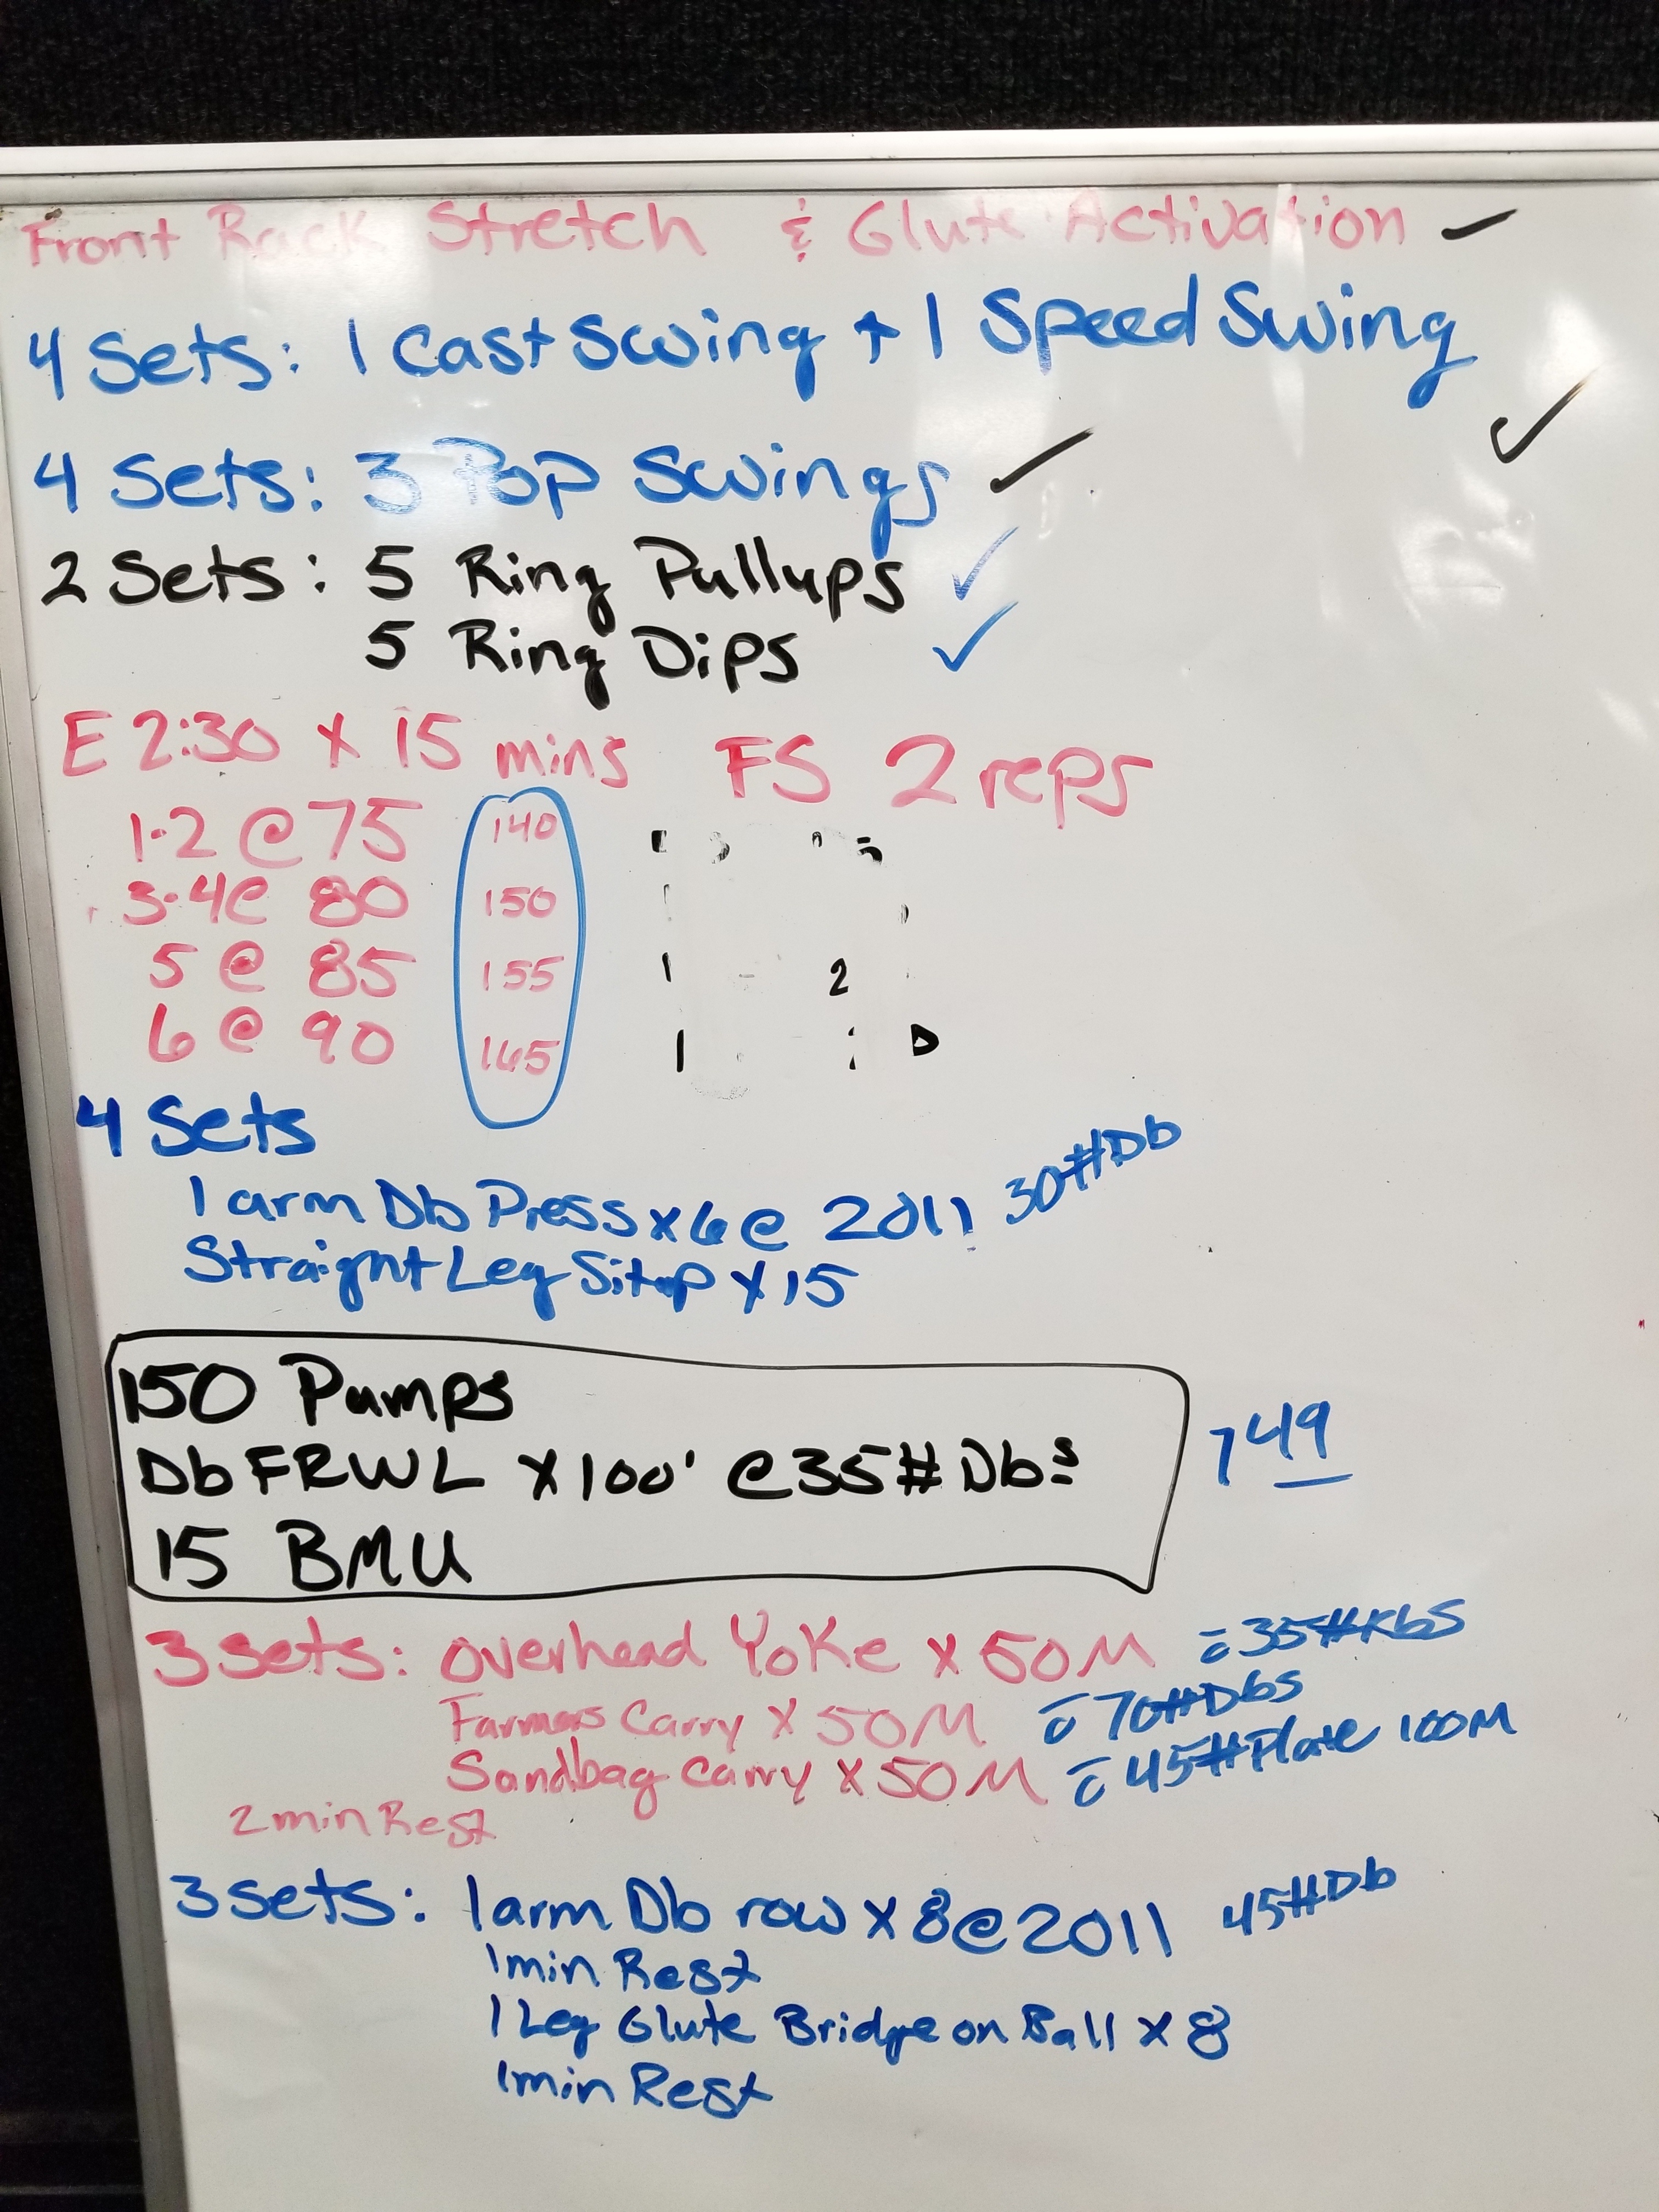 Front Rack Stretch & Glute Activation
4 Sets: 1 Cast Swing + 1 Speed Swing
4 Sets: 3 Pop Swings
2 Sets: 5 Ring Pullups
5 Ring Dips
E 2:30 x 15 mins FS 2 reps
1-2 @ 75 140
3-4 @ 80 150
5 @ 85 155
6 @ 90 165
4 Sets
1 arm Db Press x 6 @ 2011 30#Db
Straight Leg Situp x 15
150 Pumps
Db FRWL x 100' @ 35# Dbs
15 BMU
7 49
3 sets: Overhead Yoke x 50M = 35#Kbs
Farmers Carry x 50M = 70#Dbs
Sandbag Carry x 50M = 45#Plate 100M
2 min Rest
3 sets: 1 arm Db row x 8 @ 2011 45#Db
1 min Rest
1 Leg Glute Bridge on Ball x 8
1 min Rest